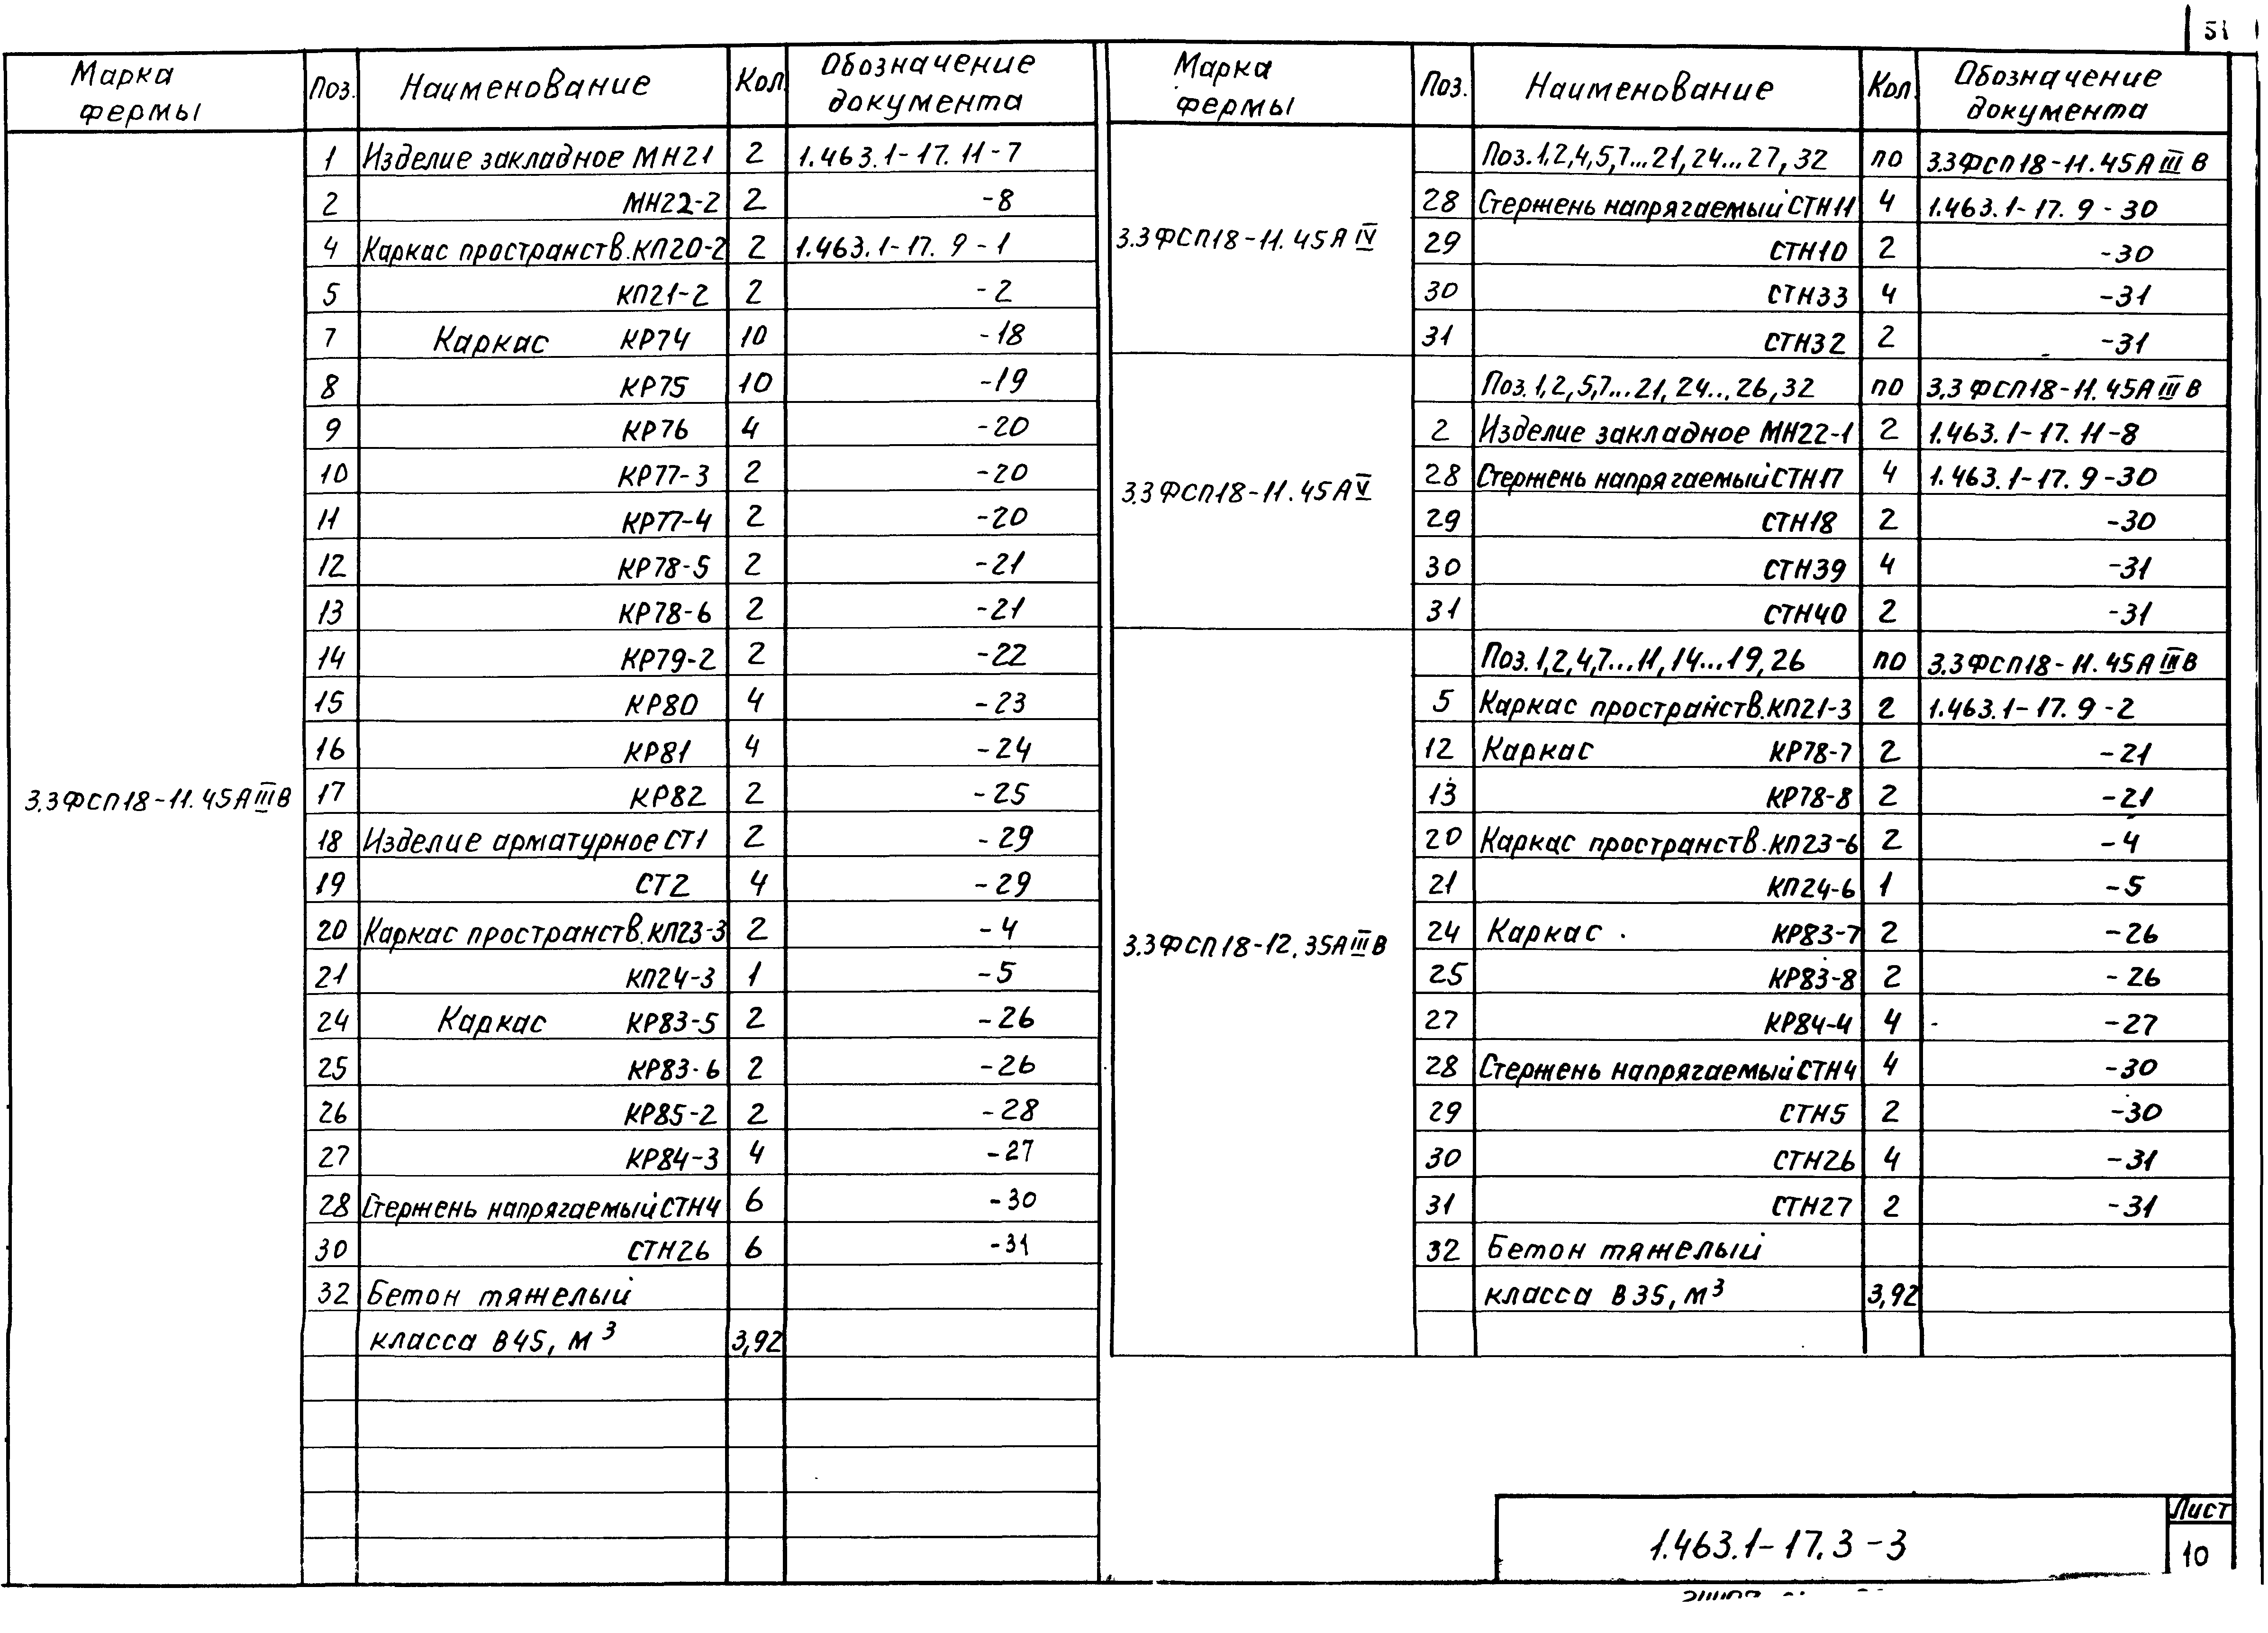 51
Марка фермы Поз. Наименование Кол. Обозначение документа
3.3ФСП18-11.45АIIIВ
1 Изделие закладное МН21 2 1.463.1-17.11-7
2 МН22-2 2 -8
4 Каркас пространств.КП20-2 2 1.463.1-17.9-1
5 КП21-2 2 -2
7 Каркас КР74 10 -18
8 КР75 10 -19
9 КР76 4 -20
10 КР77-3 2 -20
11 КР77-4 2 -20
12 КР78-5 2 -21
13 КР78-6 2 -21
14 КР79-2 2 -22
15 КР80 4 -23
16 КР81 4 -24
17 КР82 2 -25
18 Изделие арматурное СТ1 2 -29
19 СТ2 4 -29
20 Каркас пространств.КП23-3 2 -4
21 КП24-3 1 -5
24 Каркас КР83-5 2 -26
25 КР83-6 2 -26
26 КР85-2 2 -28
27 КР84-3 4 -27
28 Стержень напрягаемый СТН4 6 -30
30 СТН26 6 -31
32 Бетон тяжелый
класса В45, м³ 3,92
Марка фермы Поз. Наименование Кол. Обозначение документа
3.3ФСП18-11.45АIV
Поз.1,2,4,5,7...21,24...27,32 по 3.3ФСП18-11.45АIIIВ
28 Стержень напрягаемый СТН11 4 1.463.1-17.9-30
29 СТН10 2 -30
30 СТН33 4 -31
31 СТН32 2 -31
3.3ФСП18-11.45АV
Поз.1,2,5,7...21,24...26,32 по 3.3ФСП18-11.45АIIIВ
2 Изделие закладное МН22-1 2 1.463.1-17.11-8
28 Стержень напрягаемый СТН17 4 1.463.1-17.9-30
29 СТН18 2 -30
30 СТН39 4 -31
31 СТН40 2 -31
3.3ФСП18-12.35АIIIВ
Поз.1,2,4,7...11,14...19,26 по 3.3ФСП18-11.45АIIIВ
5 Каркас пространств.КП21-3 2 1.463.1-17.9-2
12 Каркас КР78-7 2 -21
13 КР78-8 2 -21
20 Каркас пространств.КП23-6 2 -4
21 КП24-6 1 -5
24 Каркас КР83-7 2 -26
25 КР83-8 2 -26
27 КР84-4 4 -27
28 Стержень напрягаемый СТН4 4 -30
29 СТН5 2 -30
30 СТН26 4 -31
31 СТН27 2 -31
32 Бетон тяжелый
класса В35, м³ 3,92
1.463.1-17.3-3
Лист
10